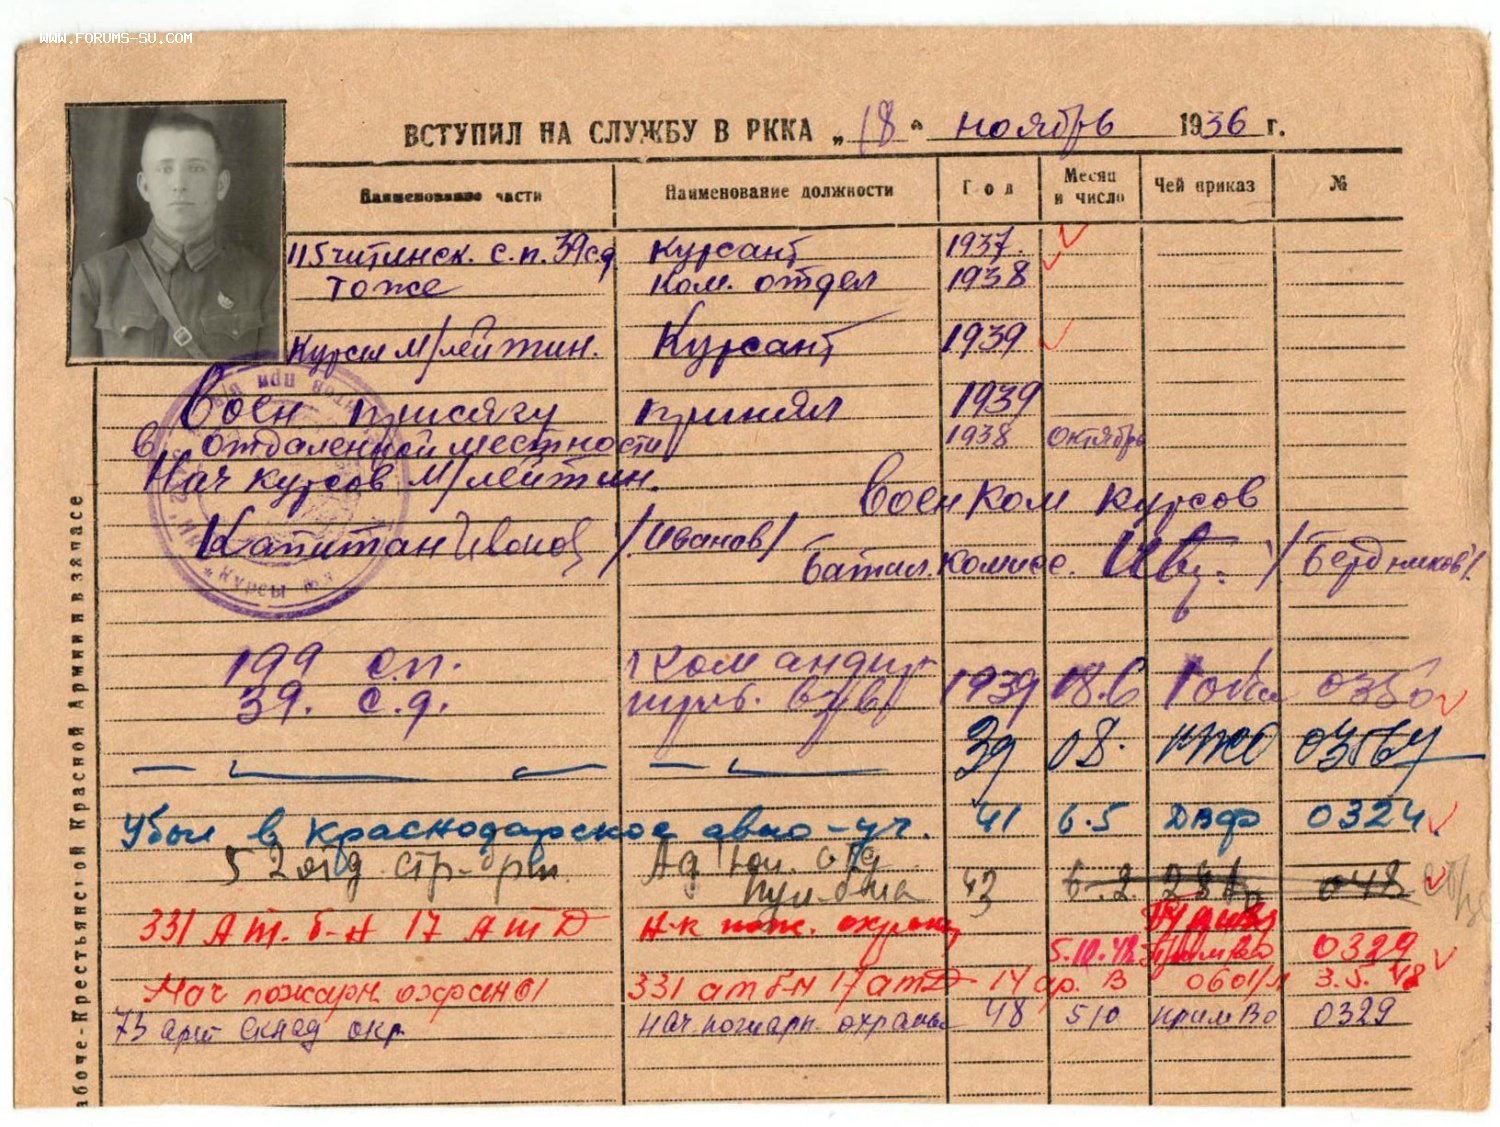 WWW.FORUMS-SU.COM
ВСТУПИЛ НА СЛУЖБУ В РККА „18" ноябрь 1936 г.
Наименование части Наименование должности Год Месяц и число Чей приказ №
115 читинск. с.п. 39 сд курсант 1937.
тоже ком. отдел 1938
Курсы М/лейтин. Курсант 1939
Воен присягу принял 1939
в отдаленной местности 1938 октябрь
Нач курсов М/лейтин.
Военком курсов
Капитан /Иванов/
Батал. комисс. /Бердников/.
199 с.п. командир
39. с.д. 1939 18.6 035
39 08.
Убыл в Краснодарское авио-уч. 41 6.5 ДВФ 0324.
52 отд. стр-бриг. Ад 43 6.2 048
331 Ат. б-н 17 АтД Н-к пож. охраны
5.10.48 0329
Нач пожарн. охраны 331 ат б-н 17 атД 17 ар. В 0601/л 3.5.48
73 арт склад окр Нач. пожарн. охраны 48 5/0 ПримВо 0329
Рабоче-Крестьянской Красной Армии и в запасе
Курсы